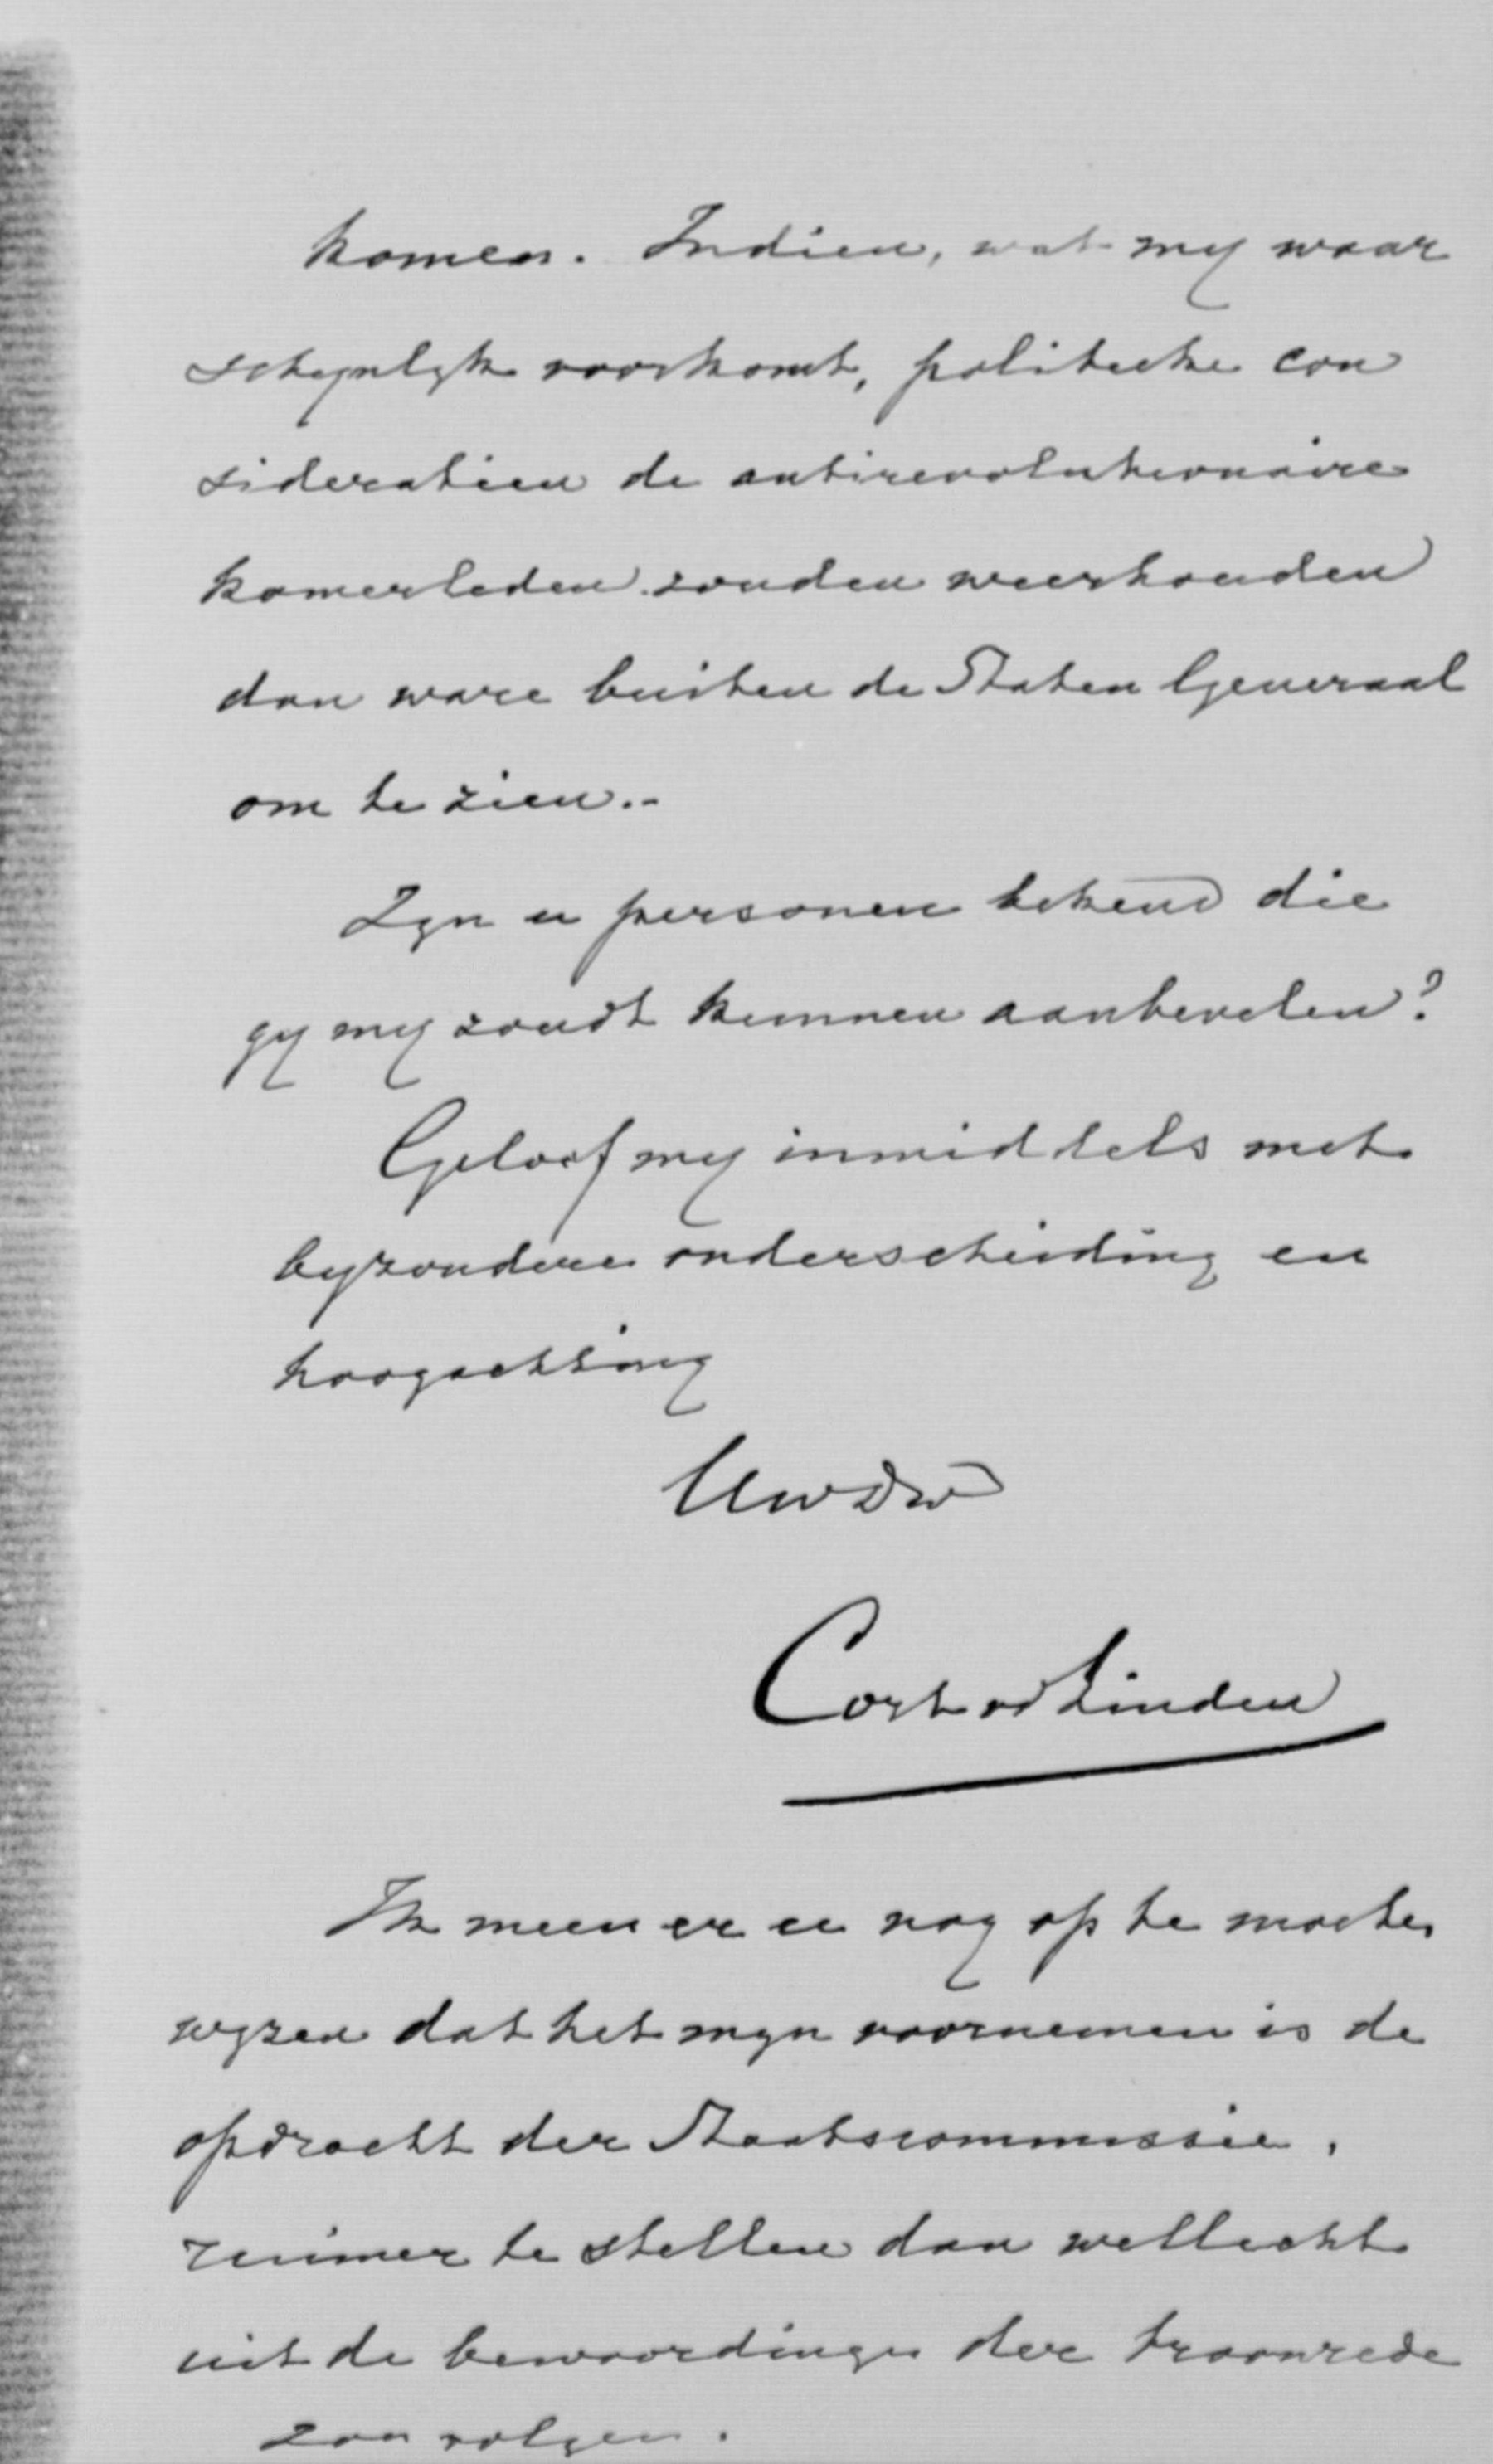 komen. Indien, wat my waar
schynlyk voorkomt, politieke con
sideratien de antirevolutionaire
kamerleden zouden weerhouden
dan ware buiten de Staten Generaal
om te zien.-
Zyn u personen bekend die
gy my zoudt kunnen aanbevelen?
Geloof my inmiddels met
byzondere onderscheiding en
hoogachting
Uw Dw
Cort vd Linden
Ik meen er u nog op te moeten
wyzen dat het myn voornemen is de
opdracht der Staatscommissie,
ruimer te stellen dan wellicht
uit de bewoordingen der troonrede
zou volgen.